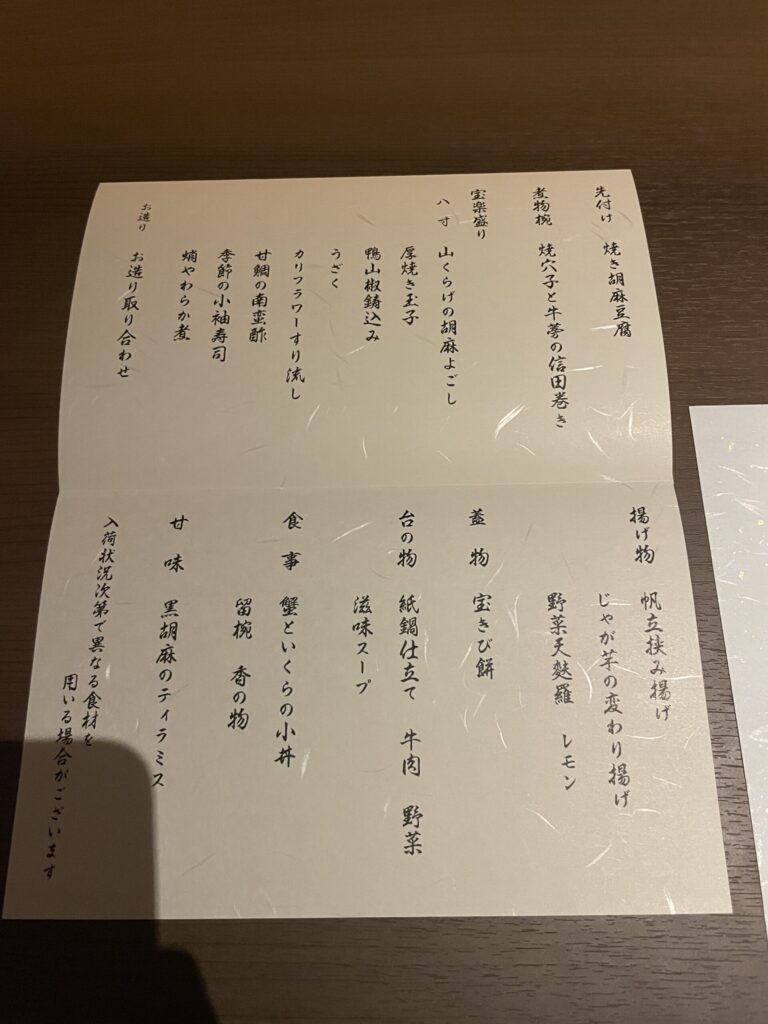 先付け 焼き胡麻豆腐
煮物椀 焼穴子と牛蒡の信田巻き
宝楽盛り
八寸 山くらげの胡麻よごし
厚焼き玉子
鴨山椒鋳込み
うざく
カリフラワーすり流し
甘鯛の南蛮酢
季節の小袖寿司
蛸やわらか煮
お造り お造り取り合わせ
揚げ物 帆立挟み揚げ
じゃが芋の変わり揚げ
野菜天麩羅 レモン
蓋物 宝きび餅
台の物 紙鍋仕立て 牛肉 野菜
滋味スープ
食事 蟹といくらの小丼
留椀 香の物
甘味 黒胡麻のティラミス
入荷状況次第で異なる食材を
用いる場合がございます